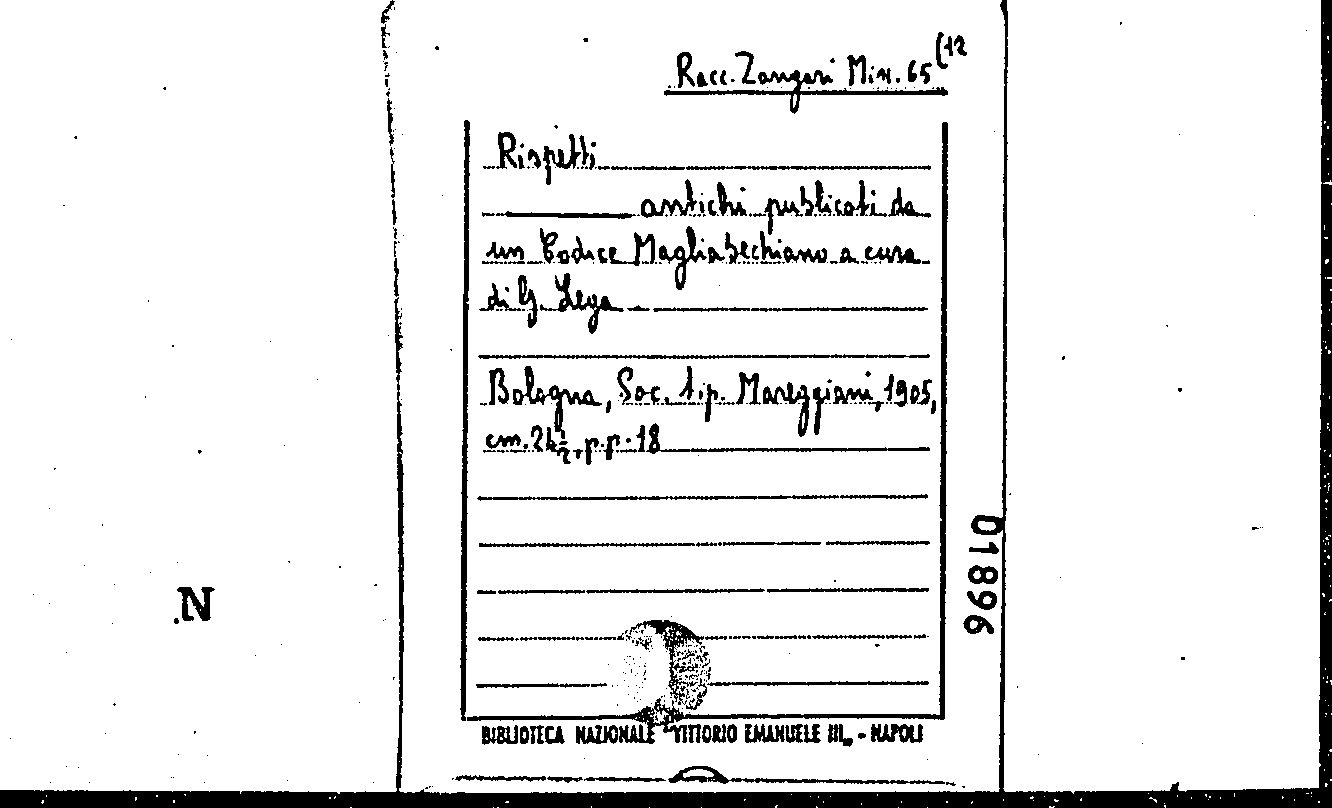 Racc. Zangari Min. 65 (12
Rispetti
antichi publicati da
un Codice Magliabechiano a cura
di G. Lega
Bologna, Soc. tip. Mareggiani, 1905,
cm. 24½, p.p. 18
01896
N
BIBLIOTECA NAZIONALE "VITTORIO EMANUELE III„ - NAPOLI